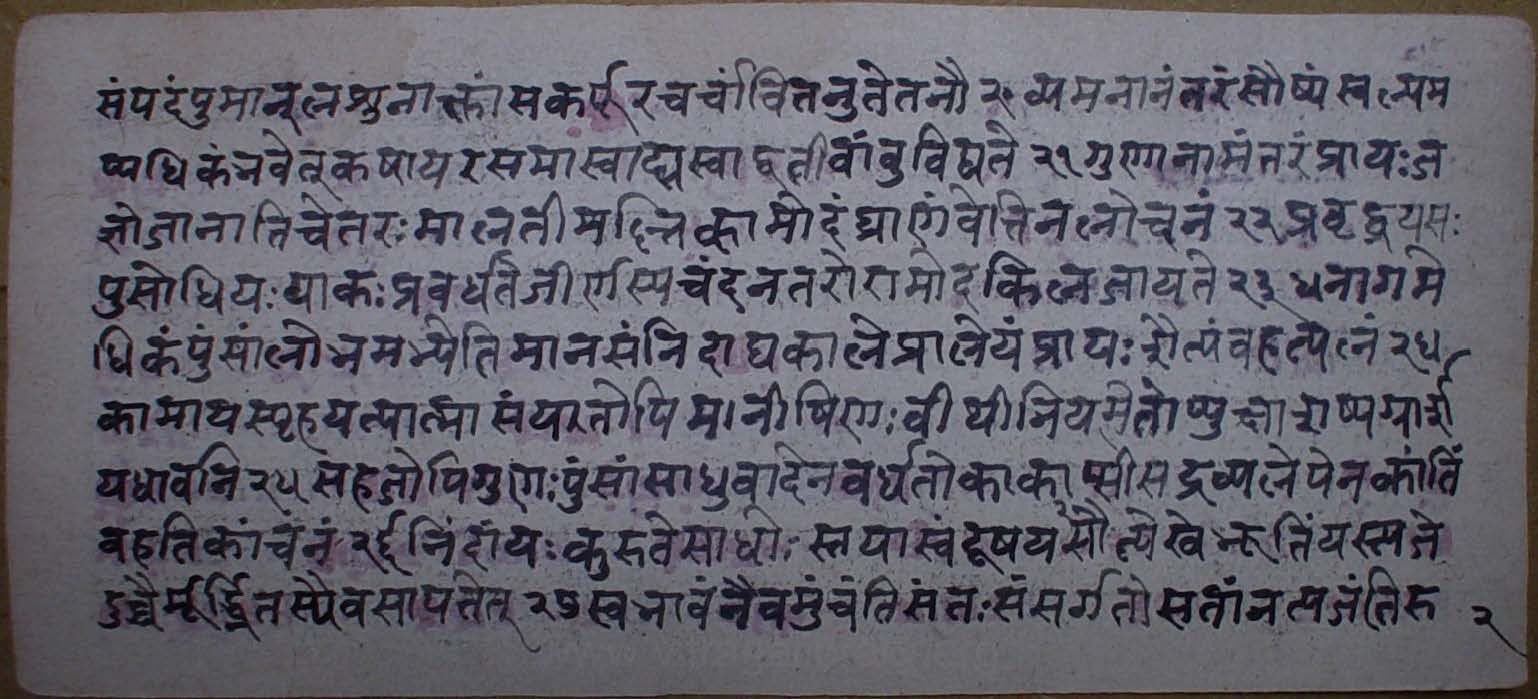 संपदंपुमान् लशुनाक्तां सकर्पूरचर्चां वितनुतेतनौ २० व्यमनानंतरं सौष्यं स्वल्पम
प्यधिकंभवेत् कषायरसमास्वाद्य स्वाद्वतीवांवु विद्यते २१ गुणानामंतरं प्रायःत
ज्ञोजानातिचेतरः मालतीमल्लिकामोदं घ्राणंवेत्तिनलोचनं २२ प्रवृद्धवयसः
पुसोधियःपाकःप्रवर्धते जीर्णस्यचंदनतरोरामोदकिलजायते २३ धनागमे
धिकंपुंसांलोभमभ्येतिमानसं निदाघकालेप्रालेयं प्रायःशैत्यंवहत्पलं २४
कामायस्पृहयत्यात्मा संयतोपिमनीषिणः वीथीनियमितोप्युक्षाशष्पमार्श
यधावति २५ सहजोपिगुणःपुंसांसाधुवादेनवर्धते काकाप्सीसद्रव्यलेपेनकांतिं
वहतिकांचनं २६ निंदांयःकुरुतेसाधोः स्तयास्वंदूषयसौत्पेखेभूतिंयस्त्यजे
दुच्चैर्मूर्द्ध्नितस्यैवसापतेत् २७ स्वभावंनैवमुंचंतिसंतःसंसर्गतोसतां नत्यजंतिरु २